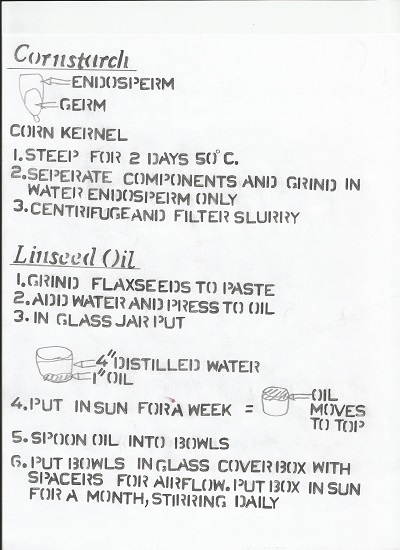 Cornstarch
ENDOSPERM
GERM
CORN KERNEL
1. STEEP FOR 2 DAYS 50°C.
2. SEPERATE COMPONENTS AND GRIND IN
WATER ENDOSPERM ONLY
3. CENTRIFUGE AND FILTER SLURRY
Linseed Oil
1. GRIND FLAXSEEDS TO PASTE
2. ADD WATER AND PRESS TO OIL
3. IN GLASS JAR PUT
4" DISTILLED WATER
1" OIL
4. PUT IN SUN FOR A WEEK =
OIL
MOVES
TO TOP
5. SPOON OIL INTO BOWLS
6. PUT BOWLS IN GLASS COVER BOX WITH
SPACERS FOR AIRFLOW. PUT BOX IN SUN
FOR A MONTH, STIRRING DAILY